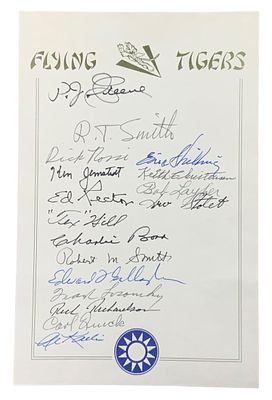 FLYING TIGERS
P. J. Greene
R. T. Smith
Dick Rossi
Eric Shilling
Ken Jernstedt
Keith Christensen
Ed Rector
Bob Layher
"Tex" Hill
Charlie Bond
Robert M Smith
Edward F Gallagher
Frank Losonsky
Rich Richardson
Carl Quick